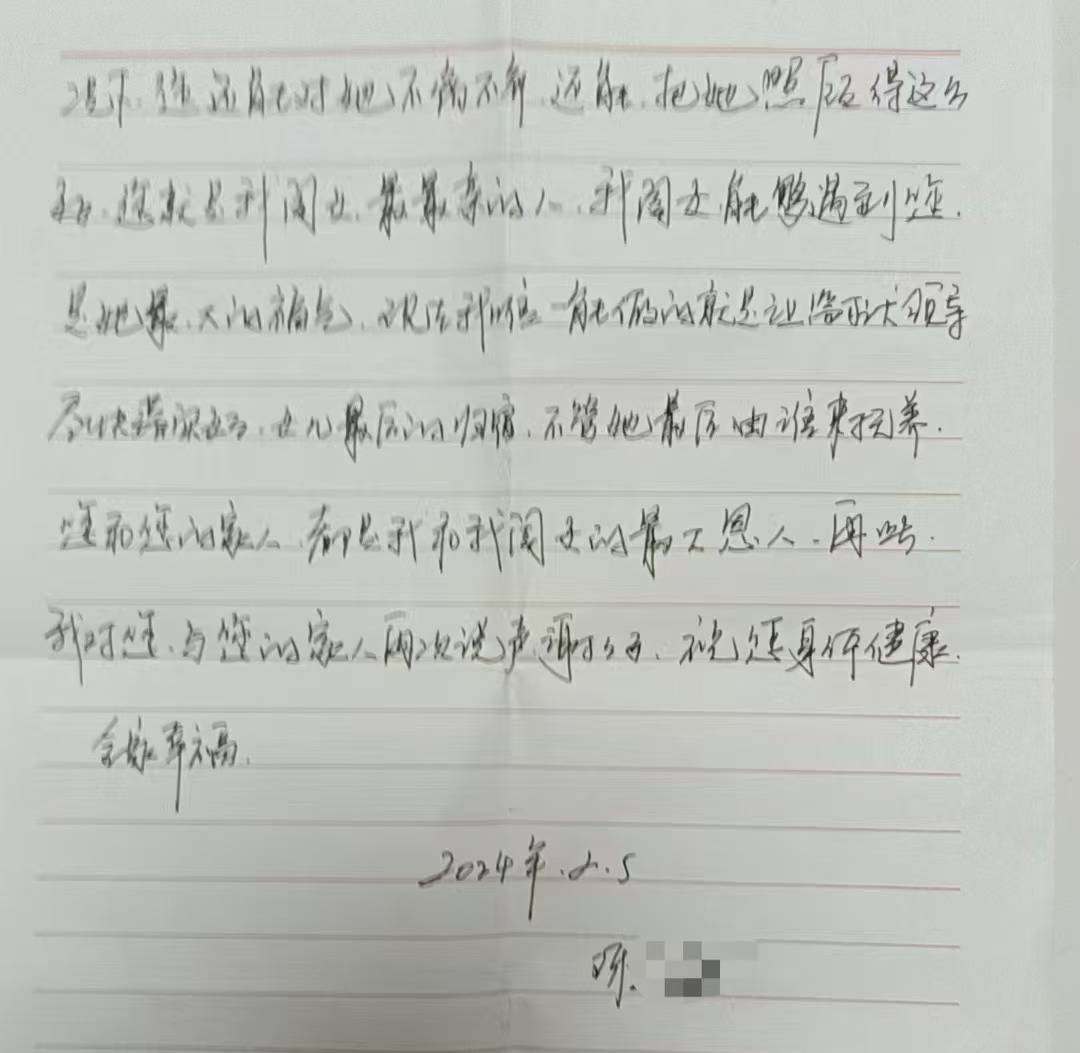 况下、您还能对她不离不弃、还能、把她照顾得这么
好、您就是我闺女、最最亲的人、我闺女、能够遇到您、
是她最、大的福气、现在我唯一能做的就是让 领导
尽快 女儿最后的归宿、不管她最后由谁来抚养、
您和您的家人、都是我和我闺女的最大恩人、再此、
我对您、与您的家人再次说声谢谢、祝您身体健康、
全家幸福、
2024年.2.5
陈.